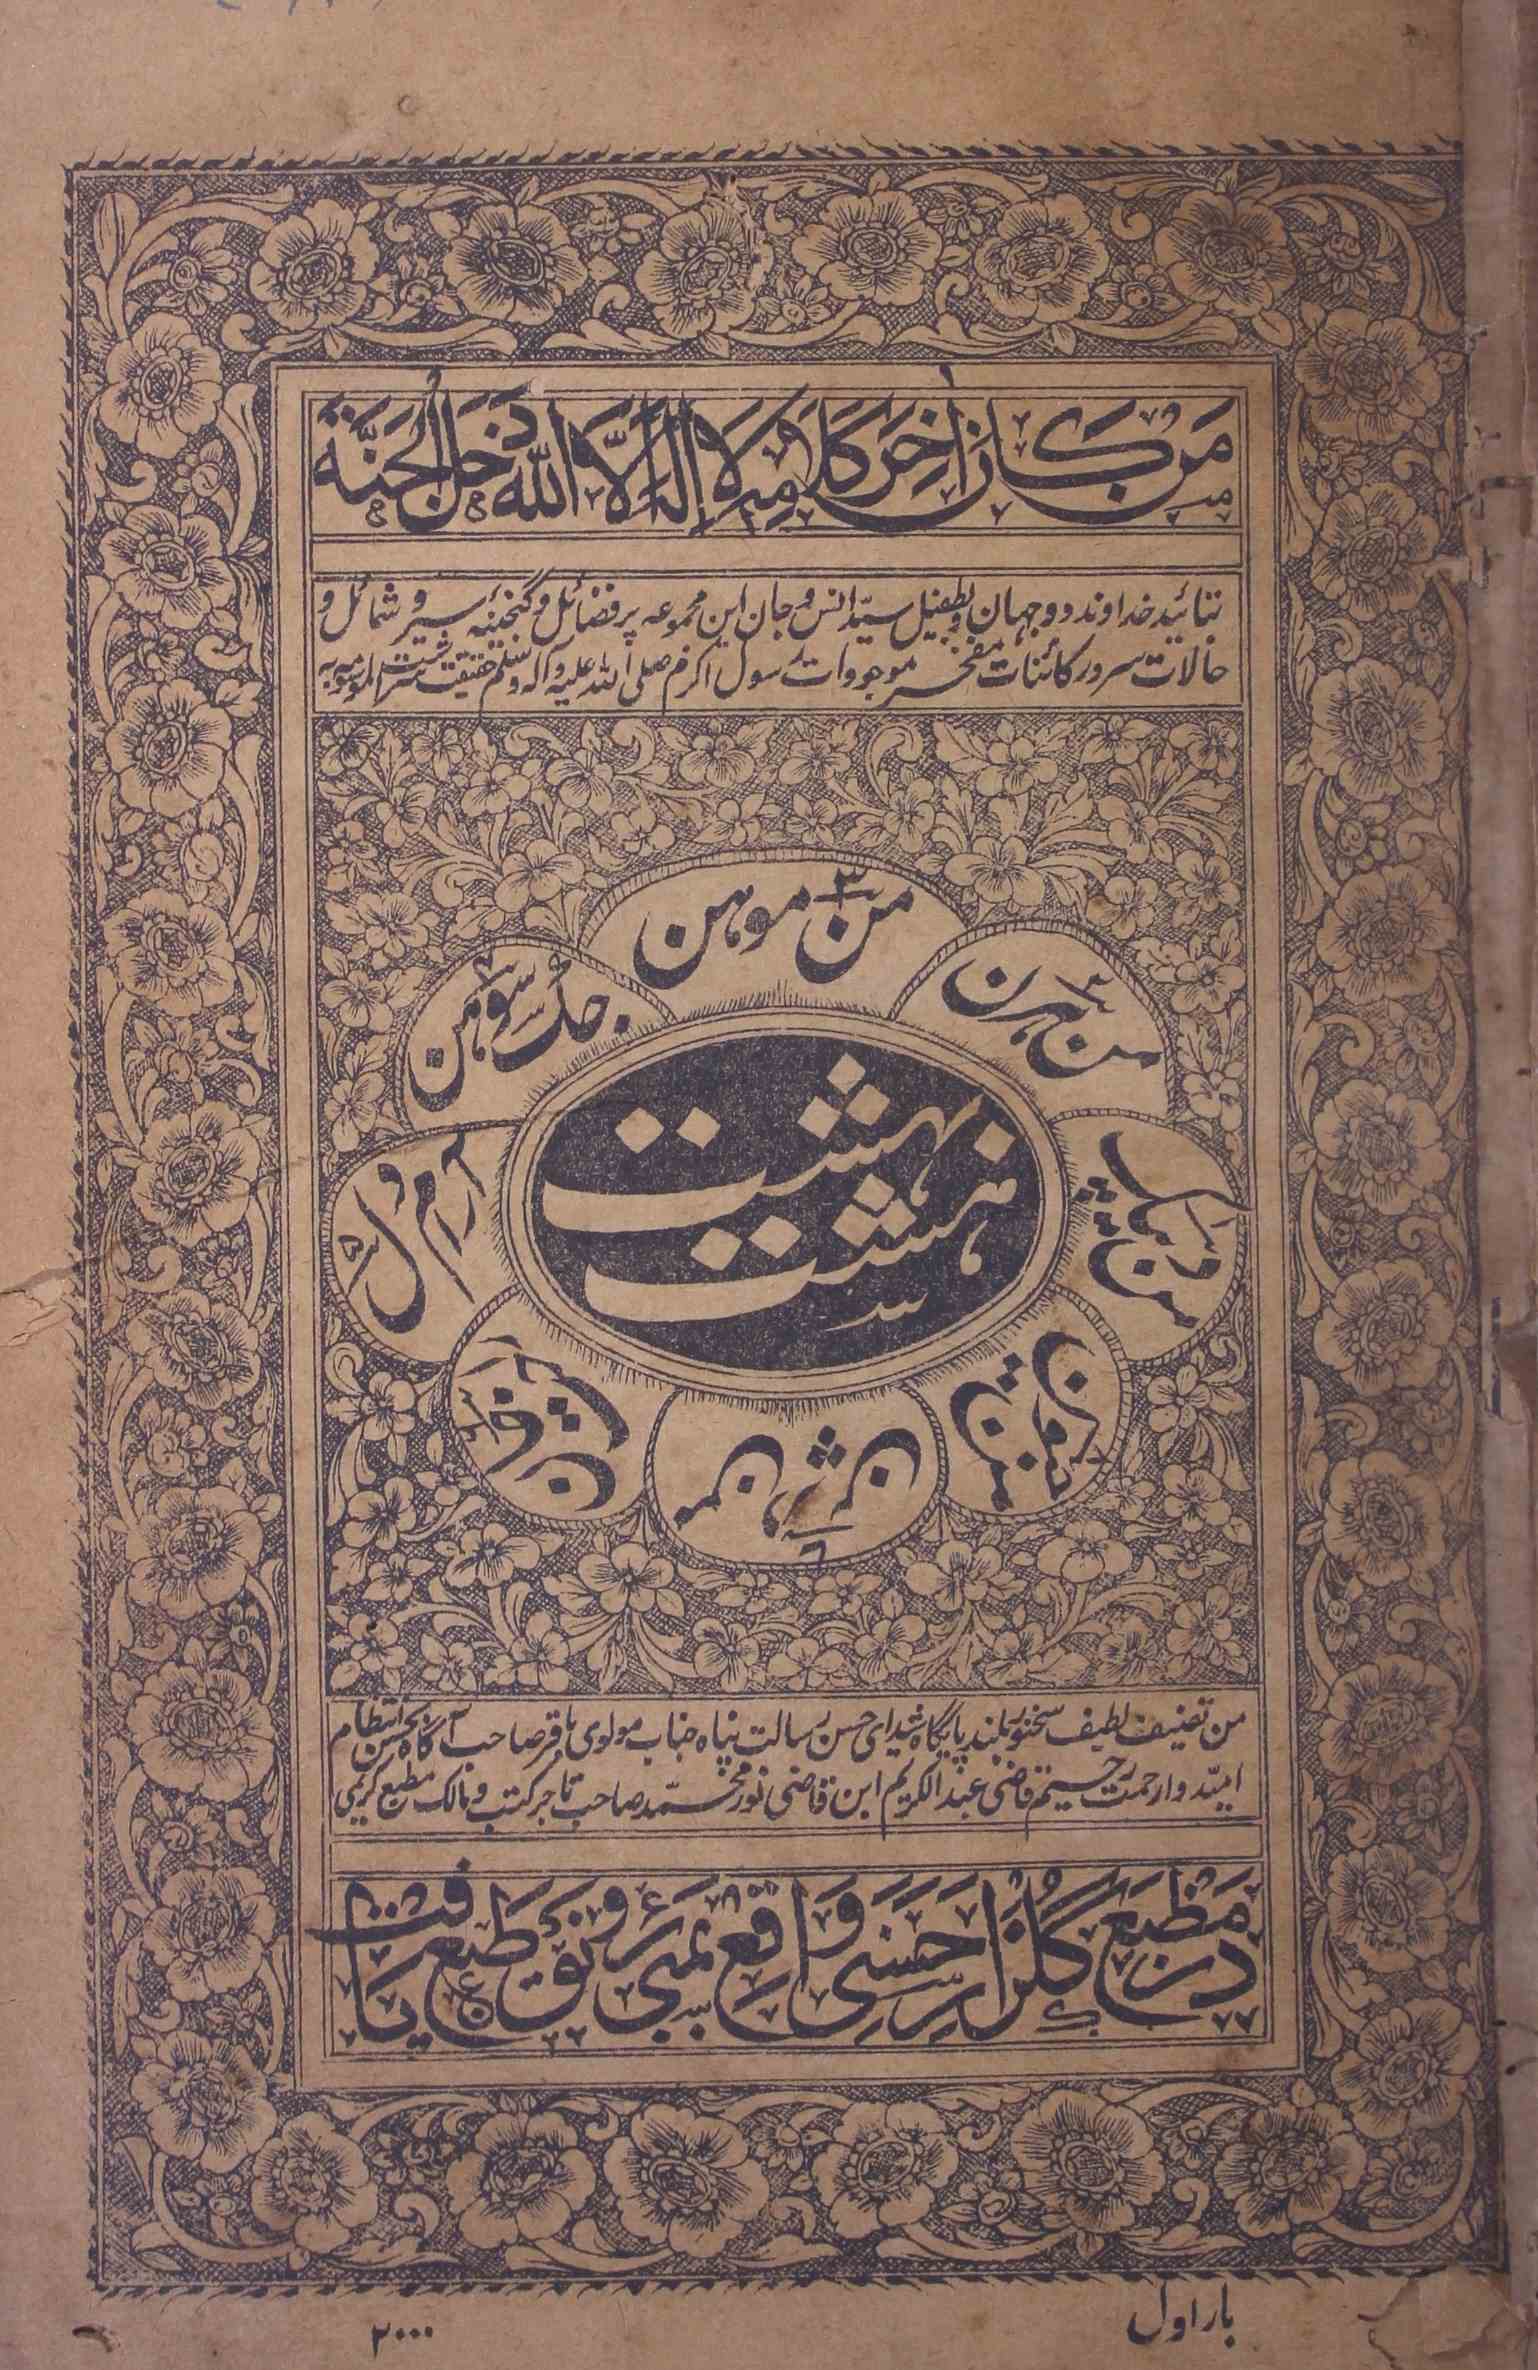 مَن كَانَ اٰخِرُ كَلَامِهٖ لَا إِلٰهَ إِلَّا اللّٰهُ دَخَلَ الْجَنَّةَ
بتائید خداوند دو جہان و بطفیل سیّد انس و جان این مجموعہ پر فضائل و گنجینۂ سیر و شمائل و
حالات سرور کائنات مفخر موجودات رسول اکرم صلی اللہ علیہ وآلہ وسلم حقیقت سرشت الموسومہ بہ
من موہن ۳
من ہرن ۲
جگ سوہن ۴
من دیپک ۱
آرام دل ۵
ہشت بہشت
من درپن ۸
من جیون ۷
راحت جان ۶
من تصنیف لطیف سخنور بلند پایگاہ شیدای حسن رسالت پناہ جناب مولوی باقر صاحب آگاہ بحسن انتظام
امیدوار رحمت رحیم قاضی عبد الکریم ابن قاضی نور محمّد صاحب تاجر کتب و مالک مطبع کریمی
در مطبع گلزار حسنی واقع بمبئی رونق طبع یافت
بار اول
۲۰۰۰